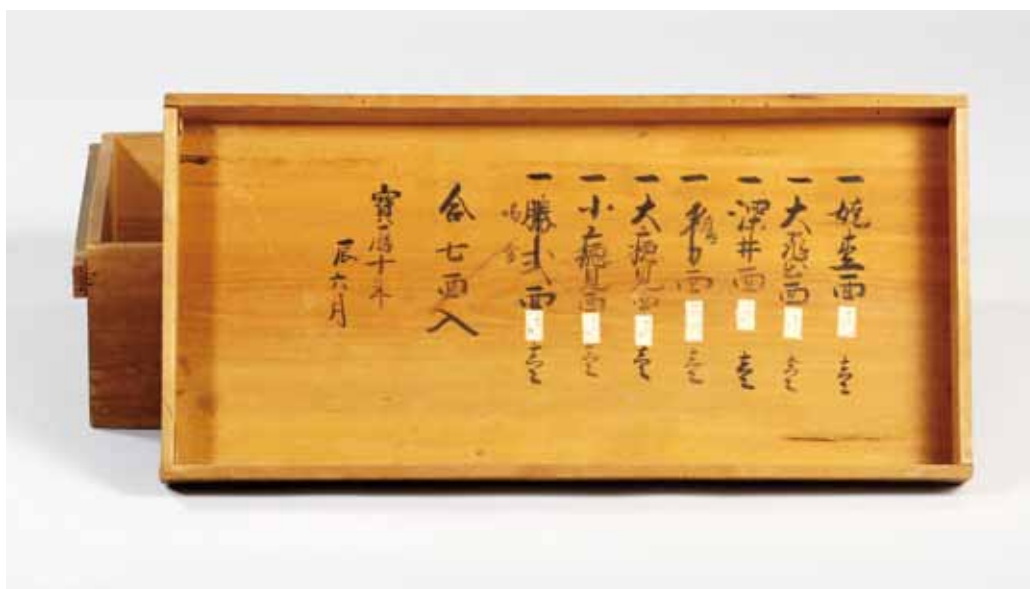 一 面 壱
一 大飛出面 壱
一 深井面 壱
一 面 壱
一 大癋見面 壱
一 小癋見面 壱
一 面 壱
合七面入
寳暦十年
辰六月